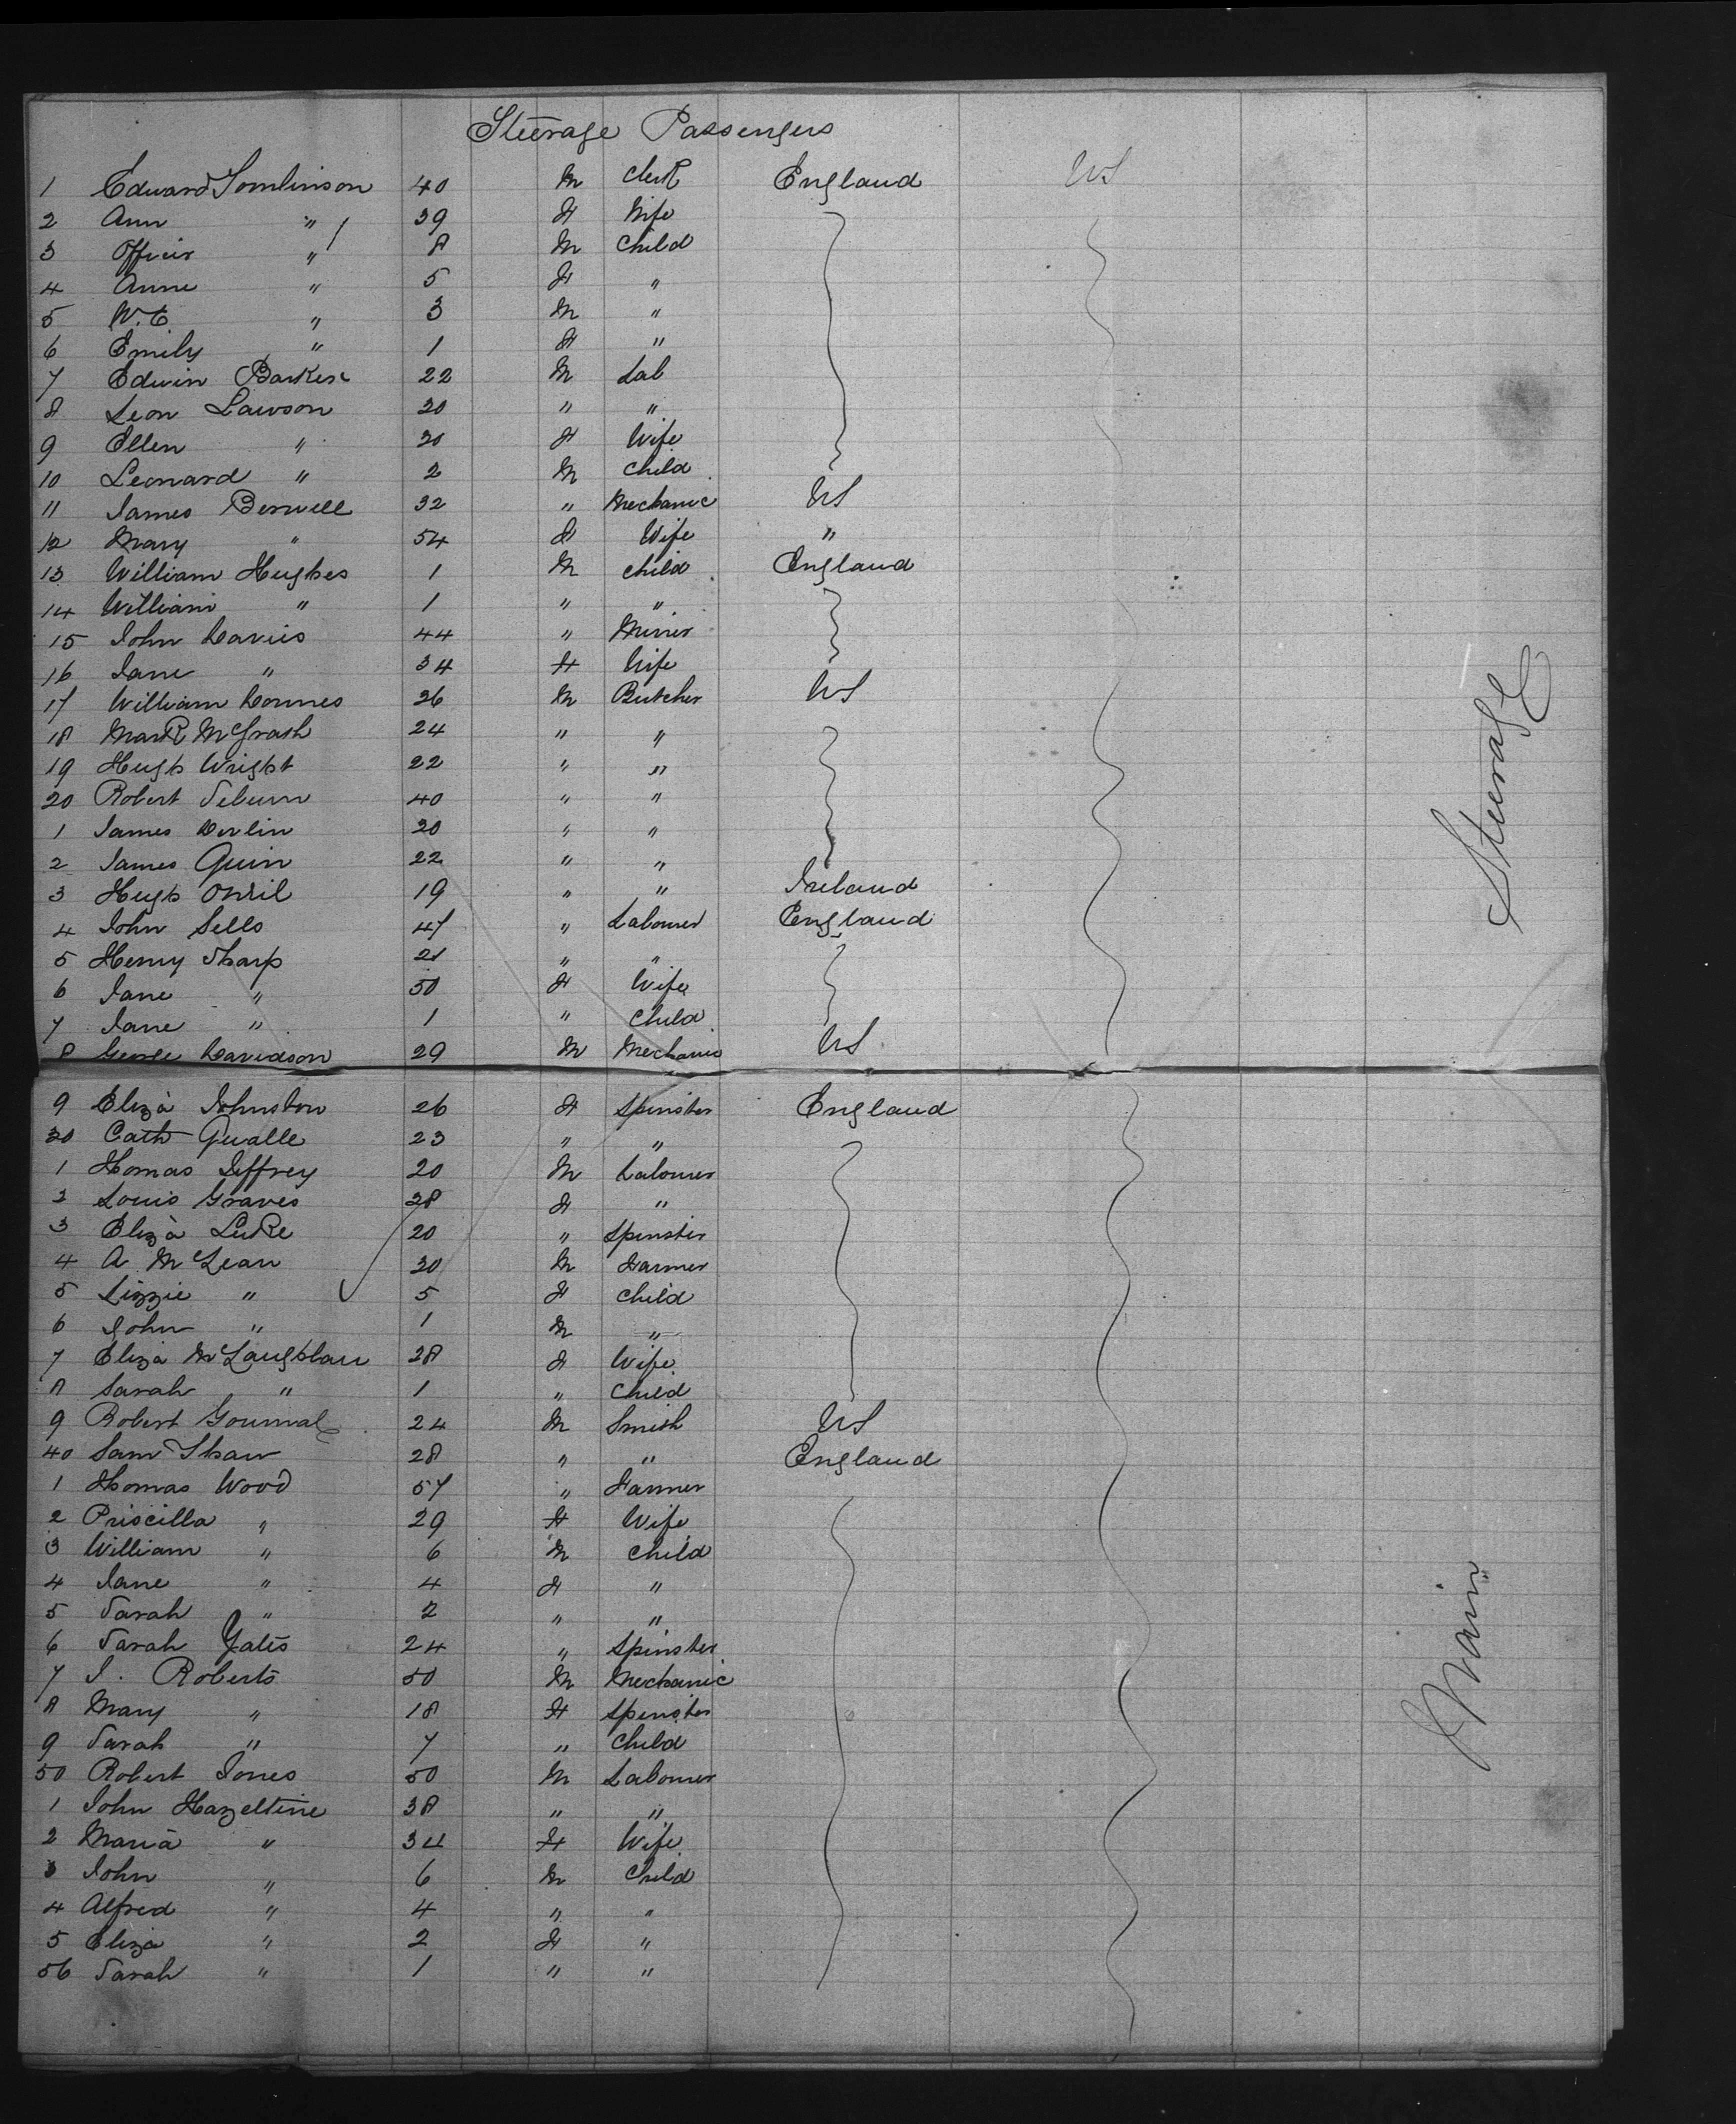 Steerage Passengers
1 Edward Tomlinson 40 M Clerk England US
2 Ann " 39 F Wife
3 " 8 M Child
4 Anne " 5 F "
5 W.E. " 3 M "
6 Emily " 1 F "
7 Edwin Barker 22 M Lab
8 Leon Lawson 30 " "
9 Ellen " 30 F Wife
10 Leonard " 2 M Child
11 James 32 " Mechanic US
12 Mary " 54 F Wife "
13 William Hughes 1 M Child England
14 William " 1 " "
15 John Davies 44 " Miner
16 Jane " 34 F Wife
17 William 26 M Butcher US
18 Mark McGrath 24 " "
19 Hugh Wright 22 " "
20 Robert 40 " "
1 James Devlin 20 " "
2 James Quin 22 " "
3 Hugh ONeil 19 " " Ireland
4 John Sells 47 " Labourer England
5 Henry Tharp 21 " "
6 Jane " 50 F Wife
7 Jane " 1 " Child
8 George Davidson 29 M Mechanic US
9 Eliza Johnston 26 F Spinster England
30 Cath Qualle 23 " "
1 Thomas Jeffrey 20 M Labourer
2 Louis Graves 28 F "
3 Eliza Luke 20 " Spinster
4 A McLean 30 M Farmer
5 Lizzie " 5 F Child
6 John " 1 M "
7 Eliza McLaughlan 28 F Wife
8 Sarah " 1 " Child
9 Robert 24 M Smith US
40 Sam Shaw 28 " " England
1 Thomas Wood 57 " Farmer
2 Priscilla " 29 F Wife
3 William " 6 M Child
4 Jane " 4 F "
5 Sarah " 2 " "
6 Sarah Yates 24 " Spinster
7 J. Roberts 50 M Mechanic
8 Mary " 18 F Spinster
9 Sarah " 7 " Child
50 Robert Jones 50 M Labourer
1 John Hazeltine 38 " "
2 Maria " 34 F Wife
3 John " 6 M Child
4 Alfred " 4 " "
5 Eliza " 2 F "
56 Sarah " 1 " "
Steerage
Main